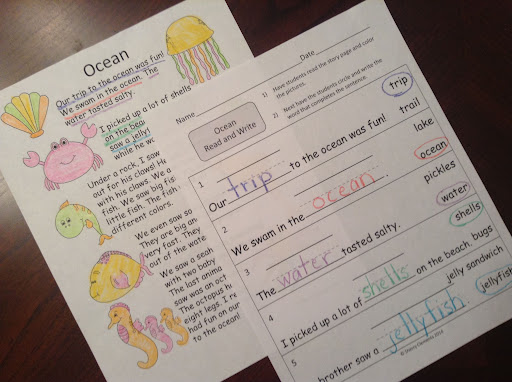 Ocean
Our trip to the ocean was fun!
We swam in the ocean. The
water tasted salty.
I picked up a lot of shells
on the bea
saw a jelly
while he w
Under a rock, I saw
out for his claws! H
with his claws. We a
fish. We saw big fis
little fish. The fish
different colors.
We even saw so
They are big an
very fast. They
out of the wate
We saw a seah
with two baby
The last anima
saw was an oct
The octopus h
eight legs. I r
had fun on our
to the ocean!
Date
Name
Ocean
Read and Write
1) Have students read the story page and color
the pictures.
2) Next have the students circle and write the
word that completes the sentence.
1
Our trip to the ocean was fun!
trip
trail
2
We swam in the ocean.
lake
ocean
3
The water tasted salty.
pickles
water
4
I picked up a lot of shells on the beach.
shells
bugs
5
brother saw a jellyfish.
jelly sandwich
jellyfish
© Sherry Clements 2014